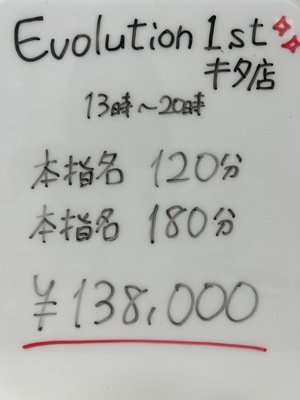 Evolution 1st
キタ店
13時~20時
本指名 120分
本指名 180分
¥138,000